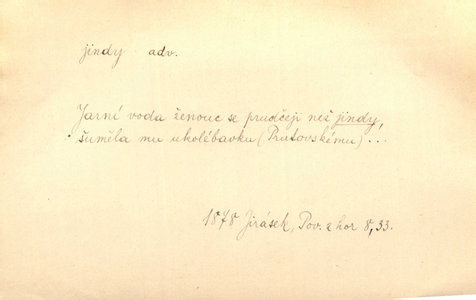 jindy adv.
Jarní voda ženouc se prudčeji než jindy,
šuměla mu ukolébavku (Prutovskému)...
1878 Jirásek, Pov. z hor 8,33.